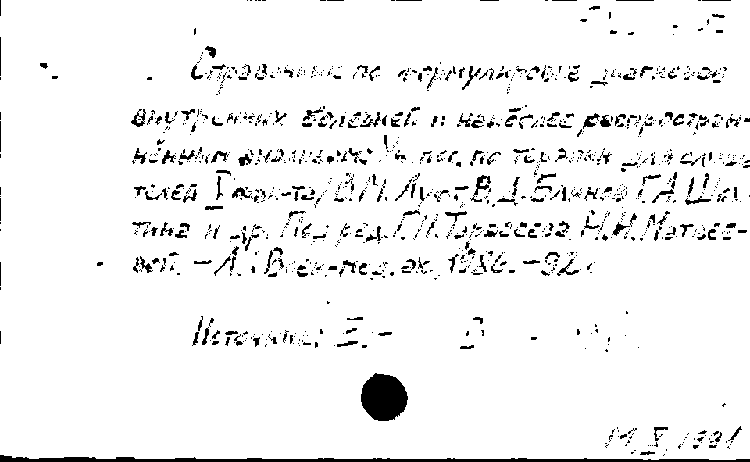 Справочник по формулировке диагнозов
внутренних болезней и наиболее распростран-
нённым анализам: Уч. пос. по терапии для слуша-
телей I фак-та / В.М. Луфт, В.Д. Блинов, Г.А. Ша-
тина и др. Под ред. Г.И. Тарасеева, Н.Н. Матвее-
вой. – Л.: Воен.-мед. ак., 1986. – 92 с
Источник:
M, X, 1991